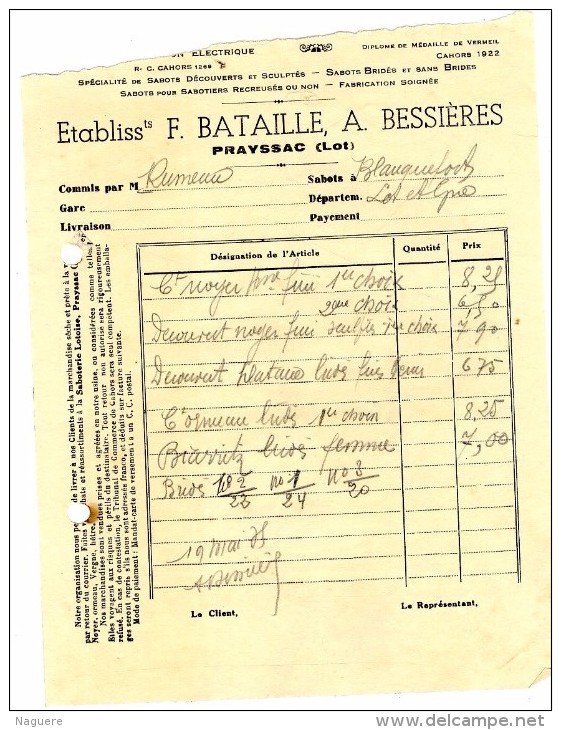 ON ÉLECTRIQUE
DIPLOME DE MÉDAILLE DE VERMEIL
R. C. CAHORS 1268
CAHORS 1922
SPÉCIALITÉ DE SABOTS DÉCOUVERTS ET SCULPTÉS — SABOTS BRIDÉS ET SANS BRIDES
SABOTS POUR SABOTIERS RECREUSÉS OU NON — FABRICATION SOIGNÉE
Etablissts F. BATAILLE, A. BESSIÈRES
PRAYSSAC (Lot)
Commis par M Rumeau
Sabots à
Gare
Départem. Lot et Gne
Livraison
Payement
Désignation de l'Article Quantité Prix
Ct noyer fini 1er choix 8,25
2ème choix 6,50
Decouvert noyer fini sculptes 1er choix 7,90
Decouvert platane 6 75
Ct ormeau 1er choix 8,25
Biarritz femme 7,00
Brides no 2/23 no 1/24 no 3/20
19 Mai
Le Client,
Le Représentant,
Notre organisation nous pe de livrer à nos Clients de la marchandise sèche et prête à la
par retour du courrier. Faites hats et réassortiments à la Saboterie Lotoise, Prayssac (
Noyer, ormeau, Vergne, hêtre,
Nos marchandises sont vendues prises et agréées en notre usine, ou considérées comme telles.
Elles voyagent aux risques et périls du destinataire. Tout retour non autorisé sera rigoureusement
refusé. En cas de contestation, le Tribunal de Commerce de Cahors sera seul compétent. Les emballa-
ges seront repris s'ils nous sont adressés franco, et déduits sur facture suivante.
Mode de paiement : Mandat-carte de versement à un C. C. postal.
Naguere
delcampe.net